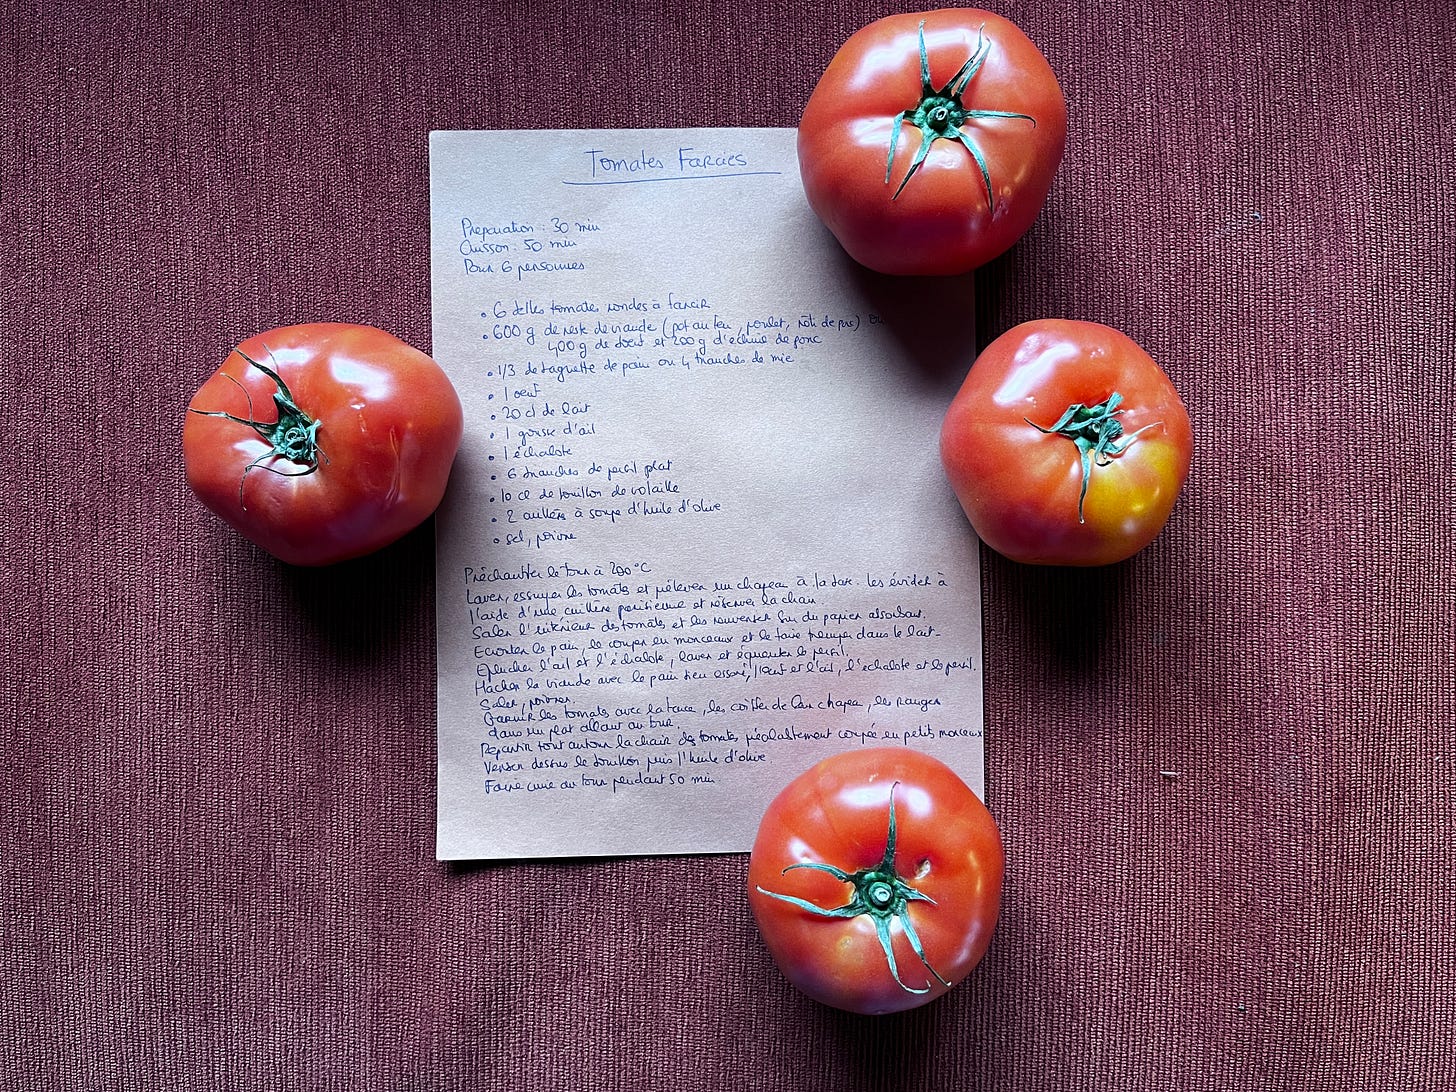 Tomates Farcies
Préparation : 30 min
Cuisson : 50 min
Pour 6 personnes
• 6 belles tomates rondes à farcir
• 600 g de reste de viande (pot au feu, poulet, rôti de porc) ou
400 g de bœuf et 200 g d'échine de porc
• 1/3 de baguette de pain ou 4 tranches de mie
• 1 oeuf
• 20 cl de lait
• 1 gousse d'ail
• 1 échalote
• 6 branches de persil plat
• 10 cl de bouillon de volaille
• 2 cuillers à soupe d'huile d'olive
• sel, poivre
Préchauffer le four à 200°C
Laver, essuyer les tomates et prélever un chapeau à la base. Les évider à
l'aide d'une cuillère parisienne et réserver la chair.
Saler l'intérieur des tomates et les renverser sur du papier absorbant.
Ecroûter le pain, le couper en morceaux et le faire tremper dans le lait.
Eplucher l'ail et l'échalote, laver et équeuter le persil.
Hacher la viande avec le pain bien essoré, l'oeuf et l'ail, l'échalote et le persil.
Saler, poivrer.
Garnir les tomates avec la farce, les coiffer de leur chapeau, les ranger
dans un plat allant au four.
Répartir tout autour la chair des tomates préalablement coupée en petits morceaux
Verser dessus le bouillon puis l'huile d'olive.
Faire cuire au four pendant 50 min